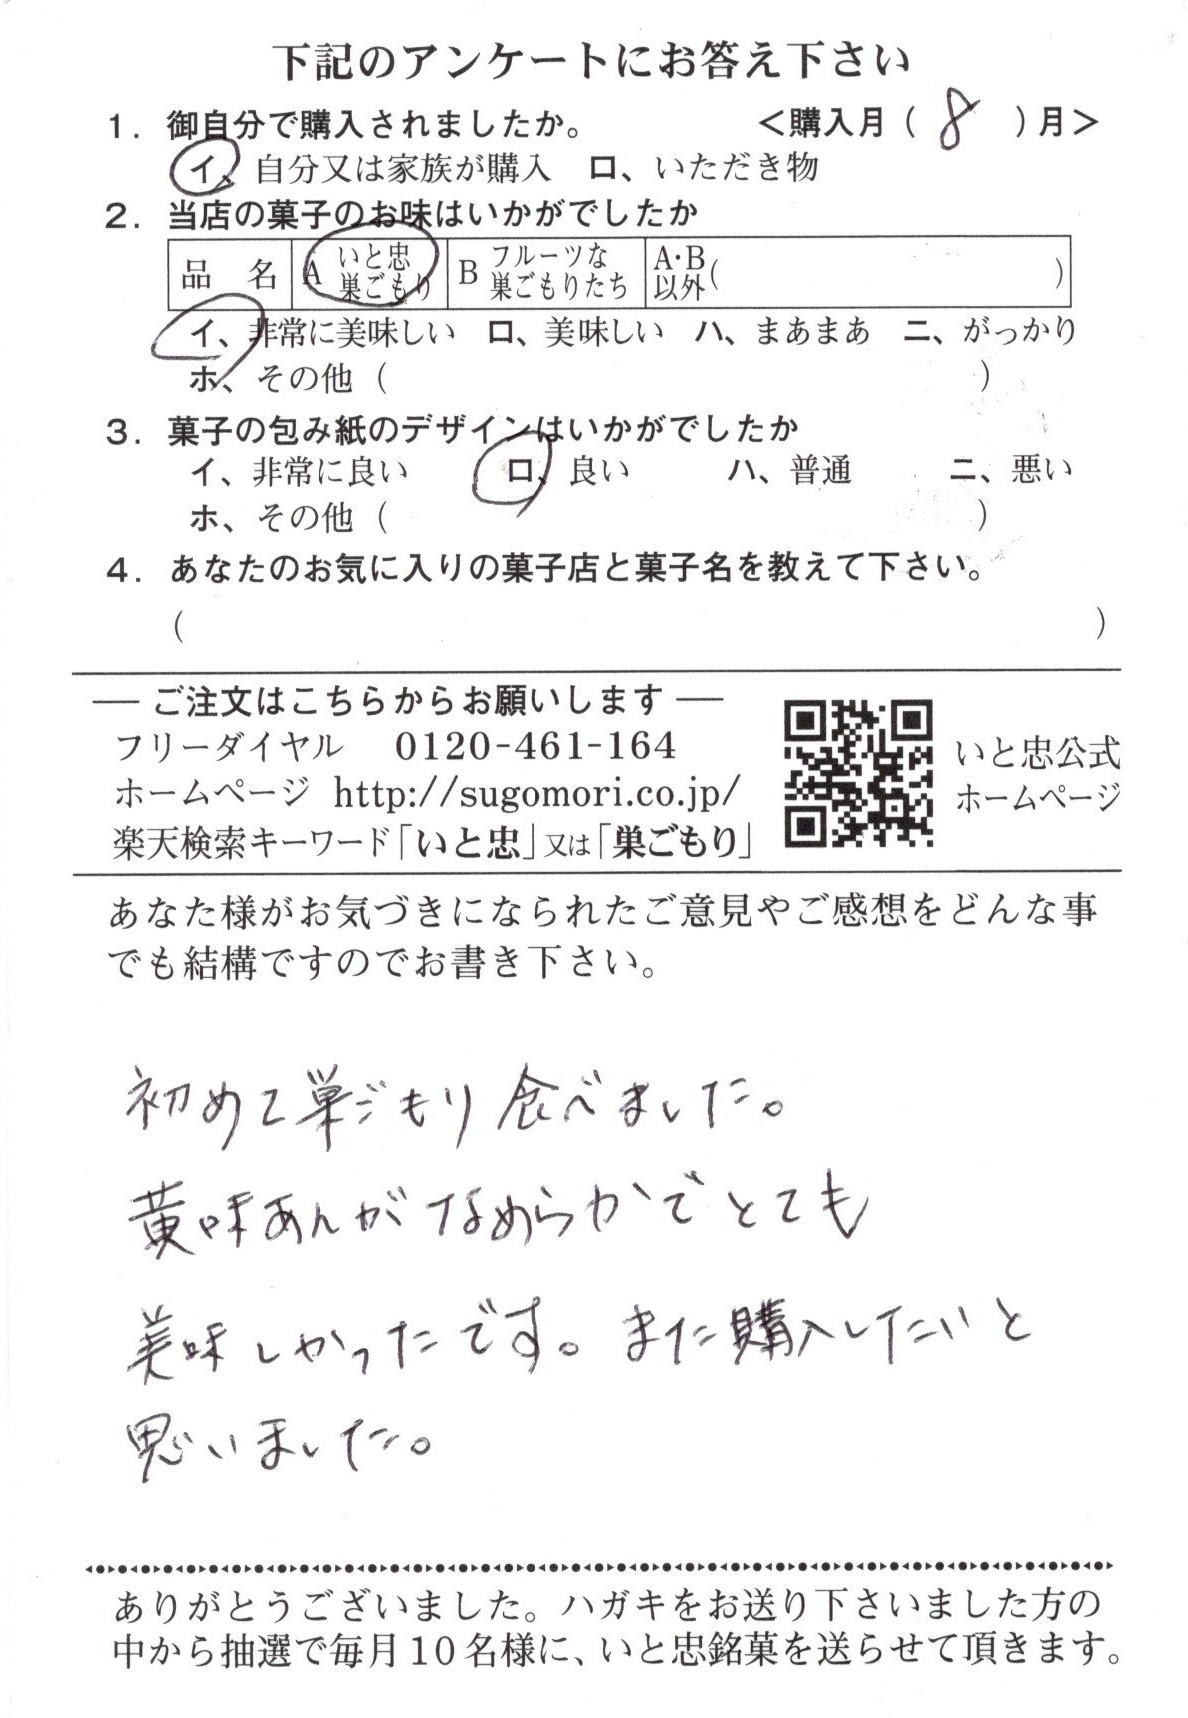 下記のアンケートにお答え下さい
1. 御自分で購入されましたか。 ＜購入月（ 8 ）月＞
イ、自分又は家族が購入 ロ、いただき物
2. 当店の菓子のお味はいかがでしたか
品 名 A いと忠巣ごもり B フルーツな巣ごもりたち A・B以外（ ）
イ、非常に美味しい ロ、美味しい ハ、まあまあ ニ、がっかり
ホ、その他（ ）
3. 菓子の包み紙のデザインはいかがでしたか
イ、非常に良い ロ、良い ハ、普通 ニ、悪い
ホ、その他（ ）
4. あなたのお気に入りの菓子店と菓子名を教えて下さい。
（ ）
― ご注文はこちらからお願いします ―
フリーダイヤル 0120-461-164
ホームページ http://sugomori.co.jp/
楽天検索キーワード「いと忠」又は「巣ごもり」
いと忠公式
ホームページ
あなた様がお気づきになられたご意見やご感想をどんな事
でも結構ですのでお書き下さい。
初めて巣ごもり食べました。
黄味あんがなめらかでとても
美味しかったです。また購入したいと
思いました。
ありがとうございました。ハガキをお送り下さいました方の
中から抽選で毎月10名様に、いと忠銘菓を送らせて頂きます。